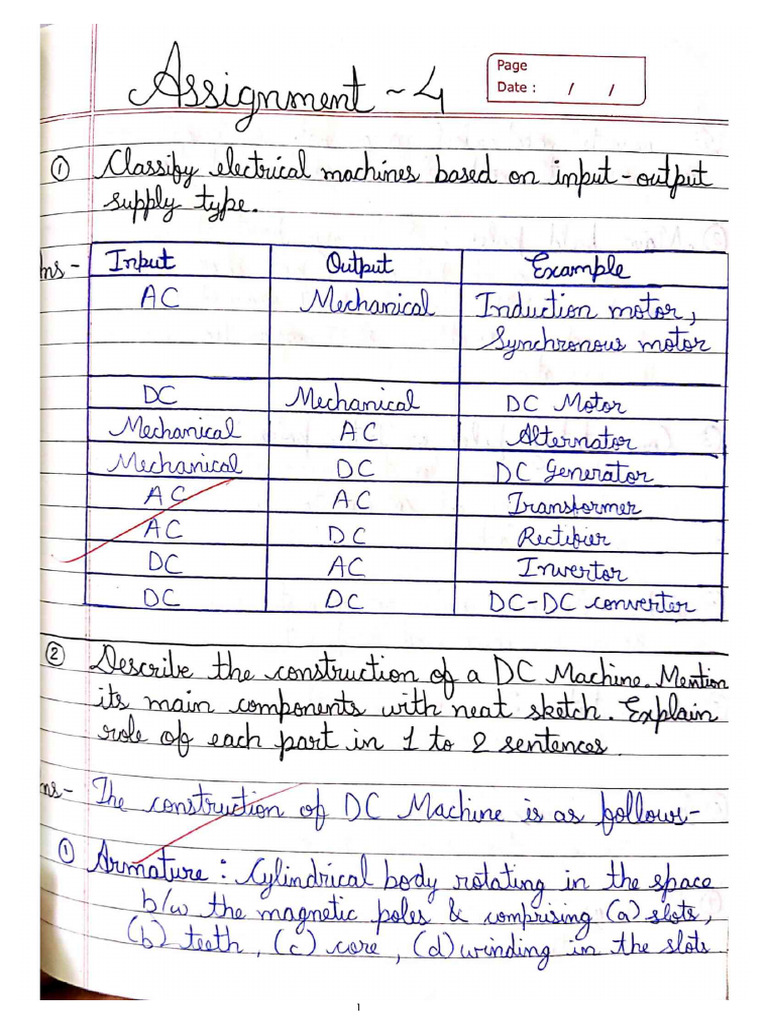 Assignment ~ 4
Page
Date : / /
① Classify electrical machines based on input-output
supply type.
ns - Input Output Example
AC Mechanical Induction motor,
Synchronous motor
DC Mechanical DC Motor
Mechanical AC Alternator
Mechanical DC DC Generator
AC AC Transformer
AC DC Rectifier
DC AC Invertor
DC DC DC-DC converter
② Describe the construction of a DC Machine. Mention
its main components with neat sketch. Explain
role of each part in 1 to 2 sentences.
ns- The construction of DC Machine is as follows-
① Armature : Cylindrical body rotating in the space
b/w the magnetic poles & comprising (a) slots,
(b) teeth, (c) core, (d) winding in the slots
1